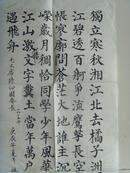 獨立寒秋湘江北去橘子洲
江碧透百舸爭流鷹擊長空
悵寥廓問蒼茫大地誰主沉
嶸歲月稠恰同學少年風
江山激文字糞土當年萬戶
過飛舟
毛主席詩沁園春長沙